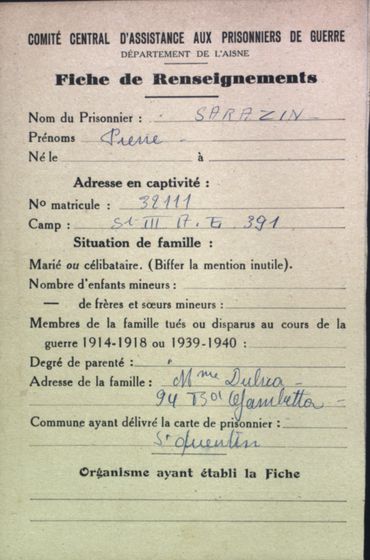 COMITÉ CENTRAL D'ASSISTANCE AUX PRISONNIERS DE GUERRE
DÉPARTEMENT DE L'AISNE
Fiche de Renseignements
Nom du Prisonnier : SARAZIN
Prénoms Pierre
Né le à
Adresse en captivité :
No matricule : 38111
Camp : St III A. 391
Situation de famille :
Marié ou célibataire. (Biffer la mention inutile).
Nombre d'enfants mineurs :
— de frères et sœurs mineurs :
Membres de la famille tués ou disparus au cours de la
guerre 1914-1918 ou 1939-1940 :
Degré de parenté :
Adresse de la famille : Mme
94 Bd Gambetta
Commune ayant délivré la carte de prisonnier :
St Quentin
Organisme ayant établi la Fiche